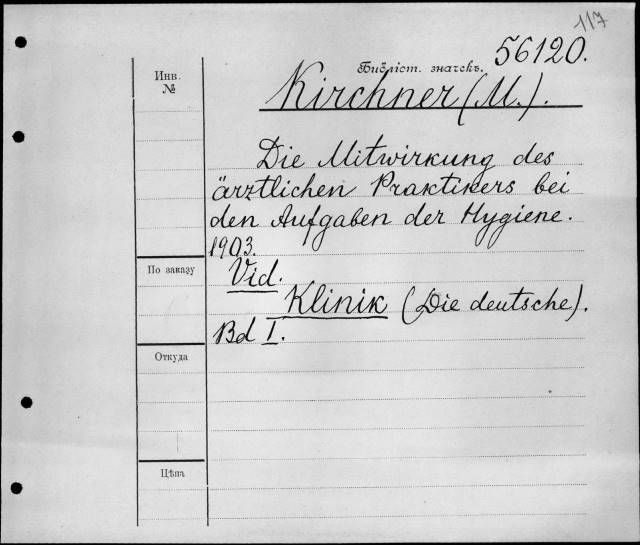 117
56120.
Библіот. значекъ.
Инв.
№
Kirchner (M.).
Die Mitwirkung des
ärztlichen Praktikers bei
den Aufgaben der Hygiene.
1903.
По заказу
Vid.
Klinik (Die deutsche).
Bd I.
Откуда
Цѣна